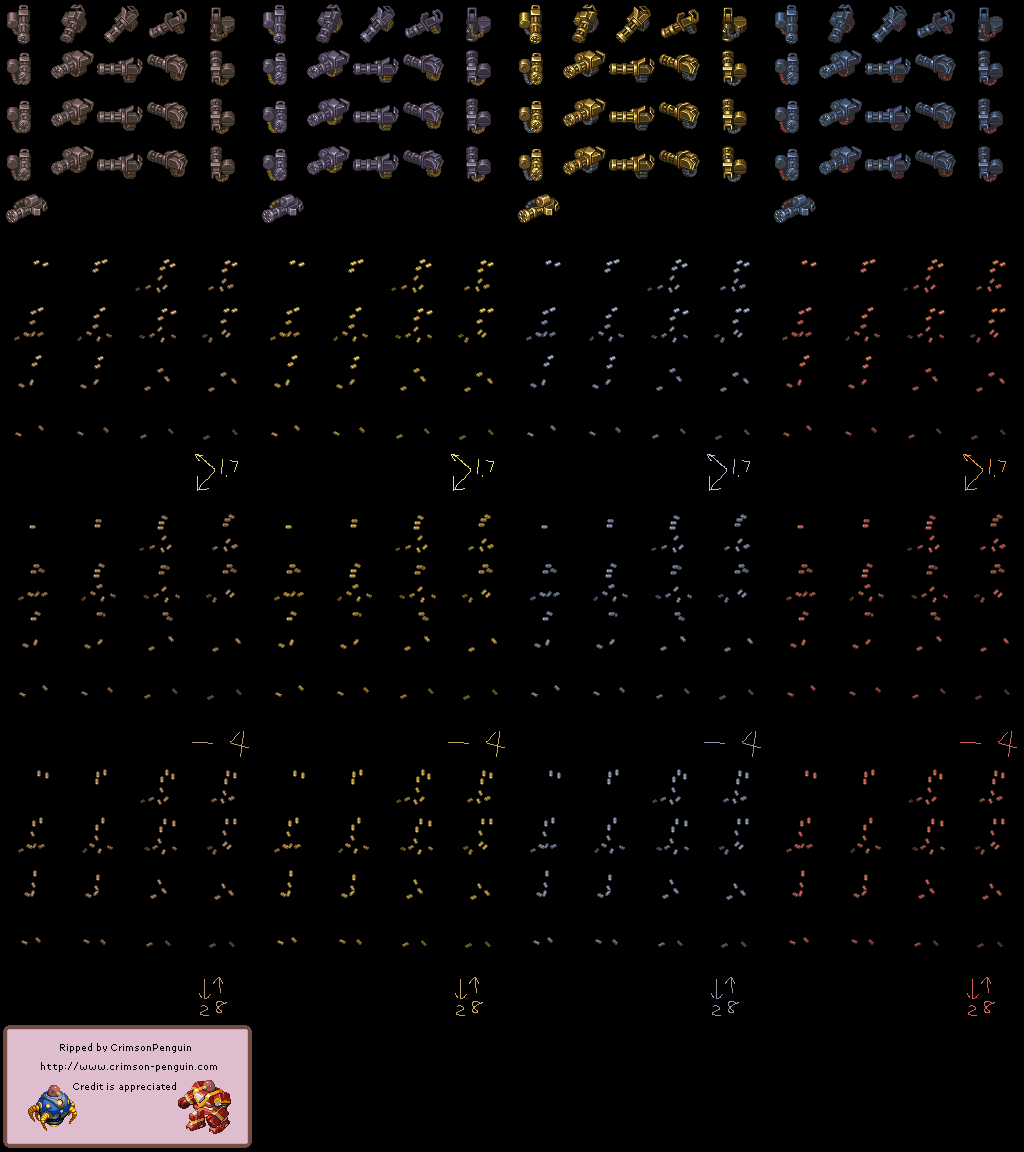 1.7 1.7 1.7 1.7
– 4 – 4 – 4 – 4
↓↑ ↓↑ ↓↑ ↓↑
28 28 28 28
Ripped by CrimsonPenguin
http://www.crimson-penguin.com
Credit is appreciated